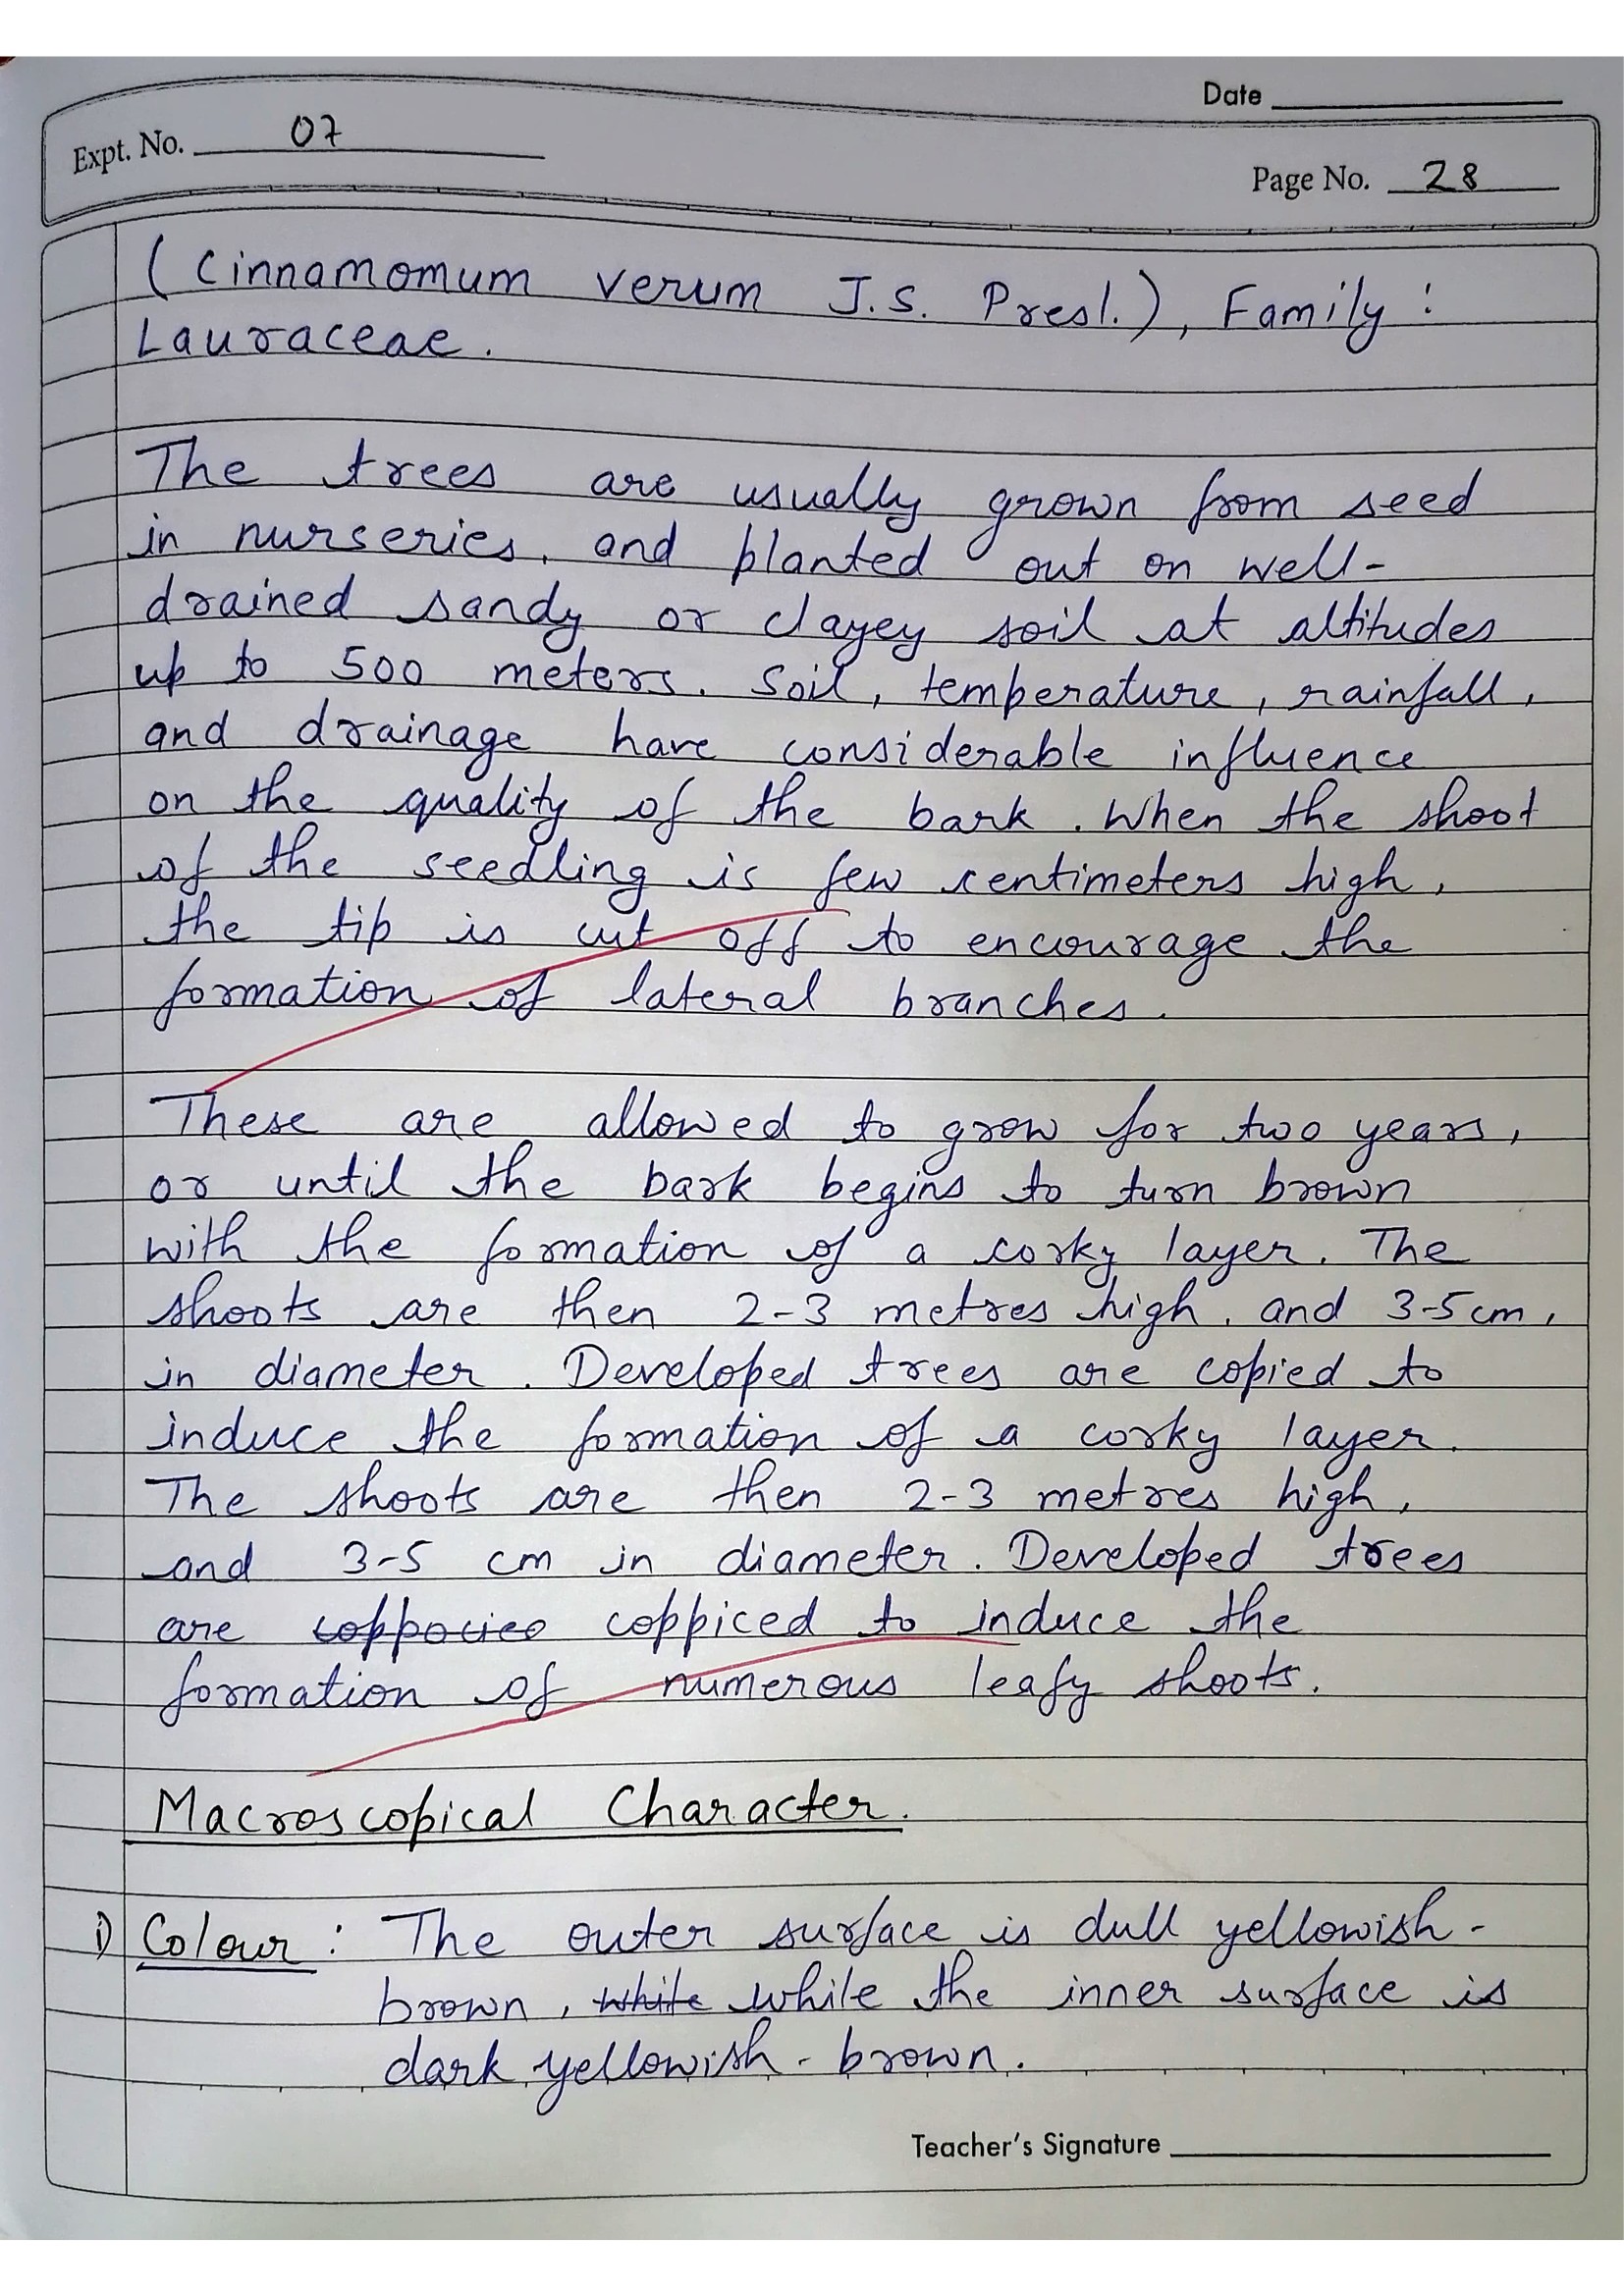 Date
Expt. No. 07
Page No. 28
(Cinnamomum verum J.S. Presl.), Family :
Lauraceae.
The trees are usually grown from seed
in nurseries, and planted out on well-
drained sandy or clayey soil at altitudes
up to 500 meters. Soil, temperature, rainfall,
and drainage have considerable influence
on the quality of the bark. When the shoot
of the seedling is few centimeters high,
the tip is cut off to encourage the
formation of lateral branches.
These are allowed to grow for two years,
or until the bark begins to turn brown
with the formation of a corky layer. The
shoots are then 2-3 metres high, and 3-5 cm,
in diameter. Developed trees are copied to
induce the formation of a corky layer.
The shoots are then 2-3 metres high,
and 3-5 cm in diameter. Developed trees
are coppiced to induce the
formation of numerous leafy shoots.
Macroscopical Character.
i) Colour : The outer surface is dull yellowish-
brown, white while the inner surface is
dark yellowish-brown.
Teacher's Signature